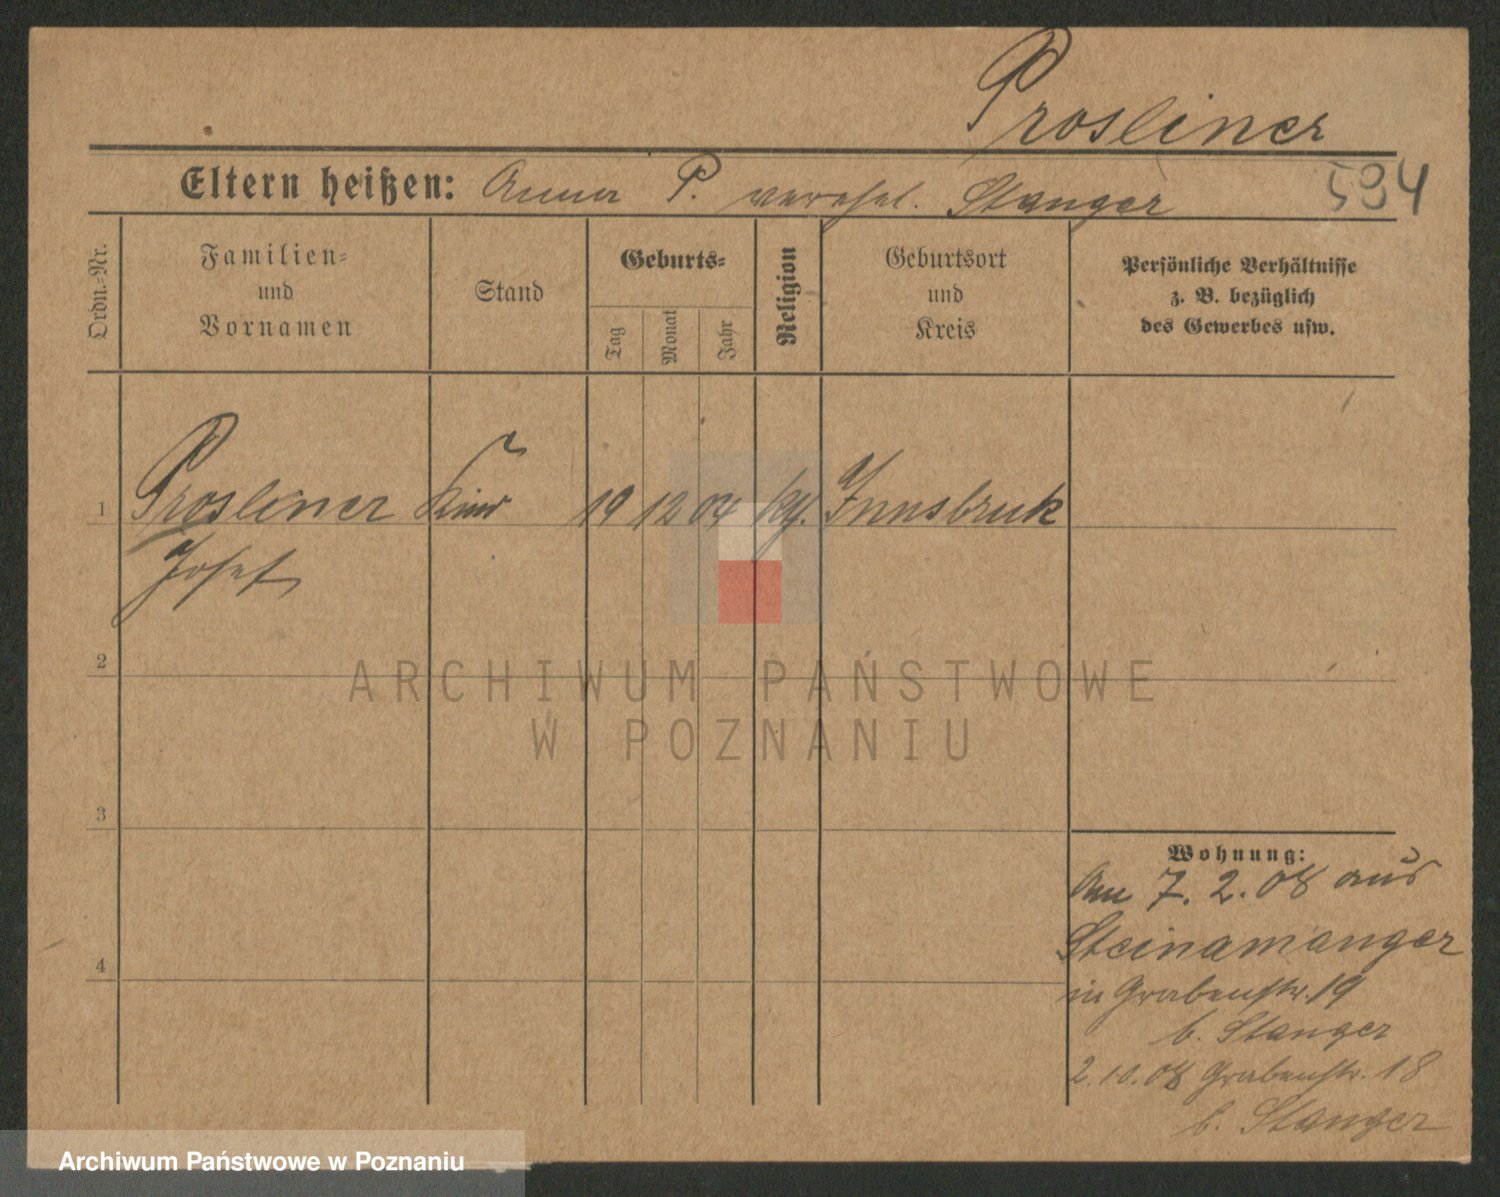 Prosliner
Eltern heißen: Anna P. verehel. Stanger
594
Ordn.-Nr.
Familien-
und
Vornamen
Stand
Geburts-
Tag
Monat
Jahr
Religion
Geburtsort
und
Kreis
Persönliche Verhältnisse
z. B. bezüglich
des Gewerbes usw.
1 Prosliner Kind 19 12 04 kg. Innsbruk
Josef
2
ARCHIWUM PAŃSTWOWE
W POZNANIU
3
Wohnung:
Am 7. 2. 08 aus
Steinamanger
4
in Grabenstr. 19
b. Stanger
2.10.08 Grabenstr. 18
b. Stanger
Archiwum Państwowe w Poznaniu